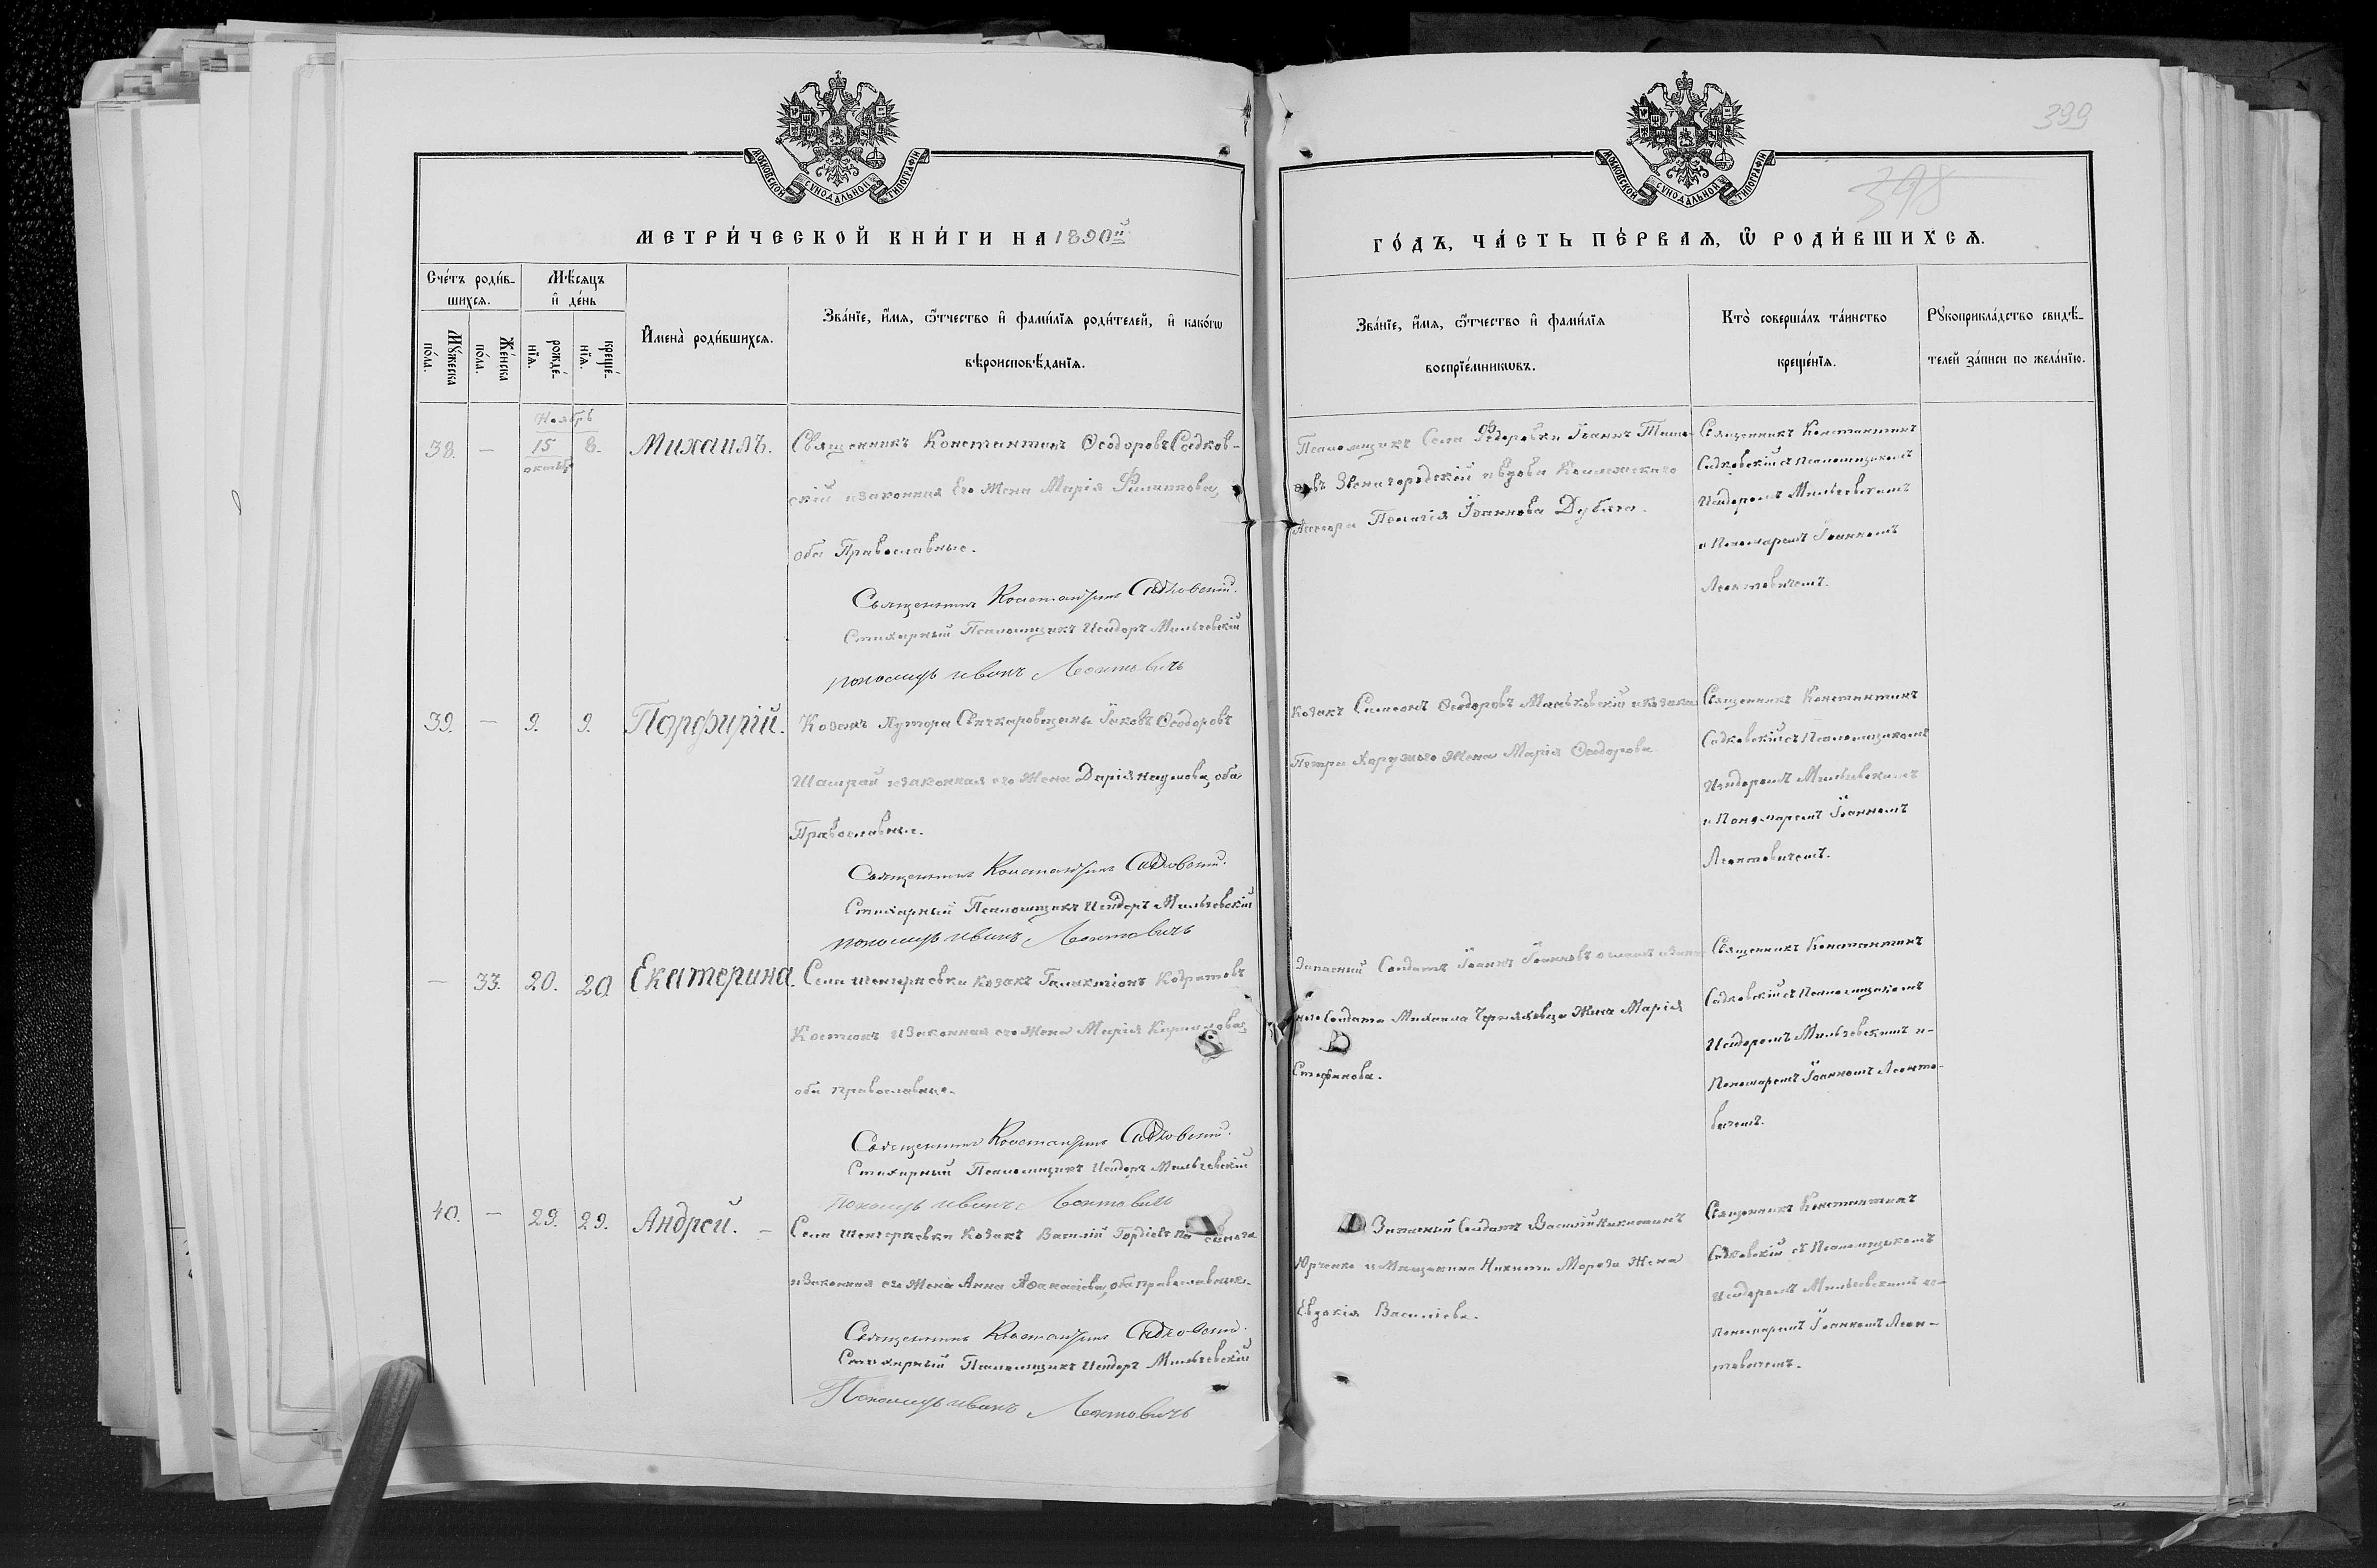 399
398
МОСКОВСКОЙ СѴНОДАЛЬНОЙ ТИПОГРАФІИ
МОСКОВСКОЙ СѴНОДАЛЬНОЙ ТИПОГРАФІИ
МЕТРИ́ЧЕСКОЙ КНИ́ГИ НА 1890й
ГО́ДЪ, ЧА́СТЬ ПЕ́РВАѦ, Ѿ РОДИ́ВШИХСѦ.
Сче́тъ роди́в-
шихсѧ.
Мѣ́сѧцъ
и҆ де́нь
Мꙋ́жеска
по́ла.
Же́нска
по́ла.
рожде́-
нїѧ.
креще́-
нїѧ.
И҆мена̀ роди́вшихсѧ.
Зва́нїе, и҆́мѧ, ѻ҆́тчество и҆ фами́лїѧ роди́телей, и҆ како́гѡ
вѣроисповѣ́данїѧ.
Зва́нїе, и҆́мѧ, ѻ҆́тчество и҆ фами́лїѧ
воспрїе́мникѡвъ.
Кто̀ соверша́лъ та́инство
креще́нїѧ.
Рꙋкоприкла́дство свидѣ́-
телей за́писи по жела́нїю.
Ноябрь
38. — 15 8. Михаилъ.
октябр
Священникъ Константинъ Ѳеодоровъ Садков-
скій и законная его жена Марія Филиппова,
оба Православные.
Священникъ Константинъ Садковскій.
Стихарный Псаломщикъ Исидоръ Мильчевскій
пономарь Иванъ Леонтовичъ
Псаломщикъ Села Федоровки Іоаннъ
Звенигородскій и вдова
Іоаннова
Священникъ Константинъ
Садковскій съ Псаломщикомъ
Исидоромъ Мильчевскимъ
и Пономаремъ Іоанномъ
Леонтовичемъ.
39. — 9. 9. Порфирій.
Козакъ Хутора Свичкаровщины Іаковъ Ѳеодоровъ
Шаграй и законная его жена Дарія Наумова, оба
Православные.
Священникъ Константинъ Садковскій.
Стихарный Псаломщикъ Исидоръ Мильчевскій
пономарь Иванъ Леонтовичъ
Козакъ Симеонъ Ѳеодоровъ Маньковскій и козака
Петра Харузного жена Марія Ѳеодорова.
Священникъ Константинъ
Садковскій съ Псаломщикомъ
Исидоромъ Мильчевскимъ
и Пономаремъ Іоанномъ
Леонтовичемъ.
— 33. 20. 20. Екатерина.
Села козакъ Галактіонъ Кодратовъ
Костюкъ и законная его жена Марія Кириллова,
оба православные.
Священникъ Константинъ Садковскій.
Стихарный Псаломщикъ Исидоръ Мильчевскій
пономарь Иванъ Леонтовичъ
Запасный Солдатъ Іоаннъ Іоанновъ
Солдата Михаила жена Марія
Стефанова.
Священникъ Константинъ
Садковскій съ Псаломщикомъ
Исидоромъ Мильчевскимъ и-
Пономаремъ Іоанномъ Леонто-
вичемъ.
40. — 29. 29. Андрей. —
Села Козакъ Василій Гордіевъ
и законная его жена Анна Аѳанасіева, оба православные.
Священникъ Константинъ Садковскій.
Стихарный Псаломщикъ Исидоръ Мильчевскій
Пономарь Иванъ Леонтовичъ
Запасный Солдатъ Василій
Юрченко и Мещанина Никиты Мороза жена
Евдокія Василіева.
Священникъ Константинъ
Садковскій съ Псаломщикомъ
Исидоромъ Мильчевскимъ и-
пономаремъ Іоанномъ Леон-
товичемъ.